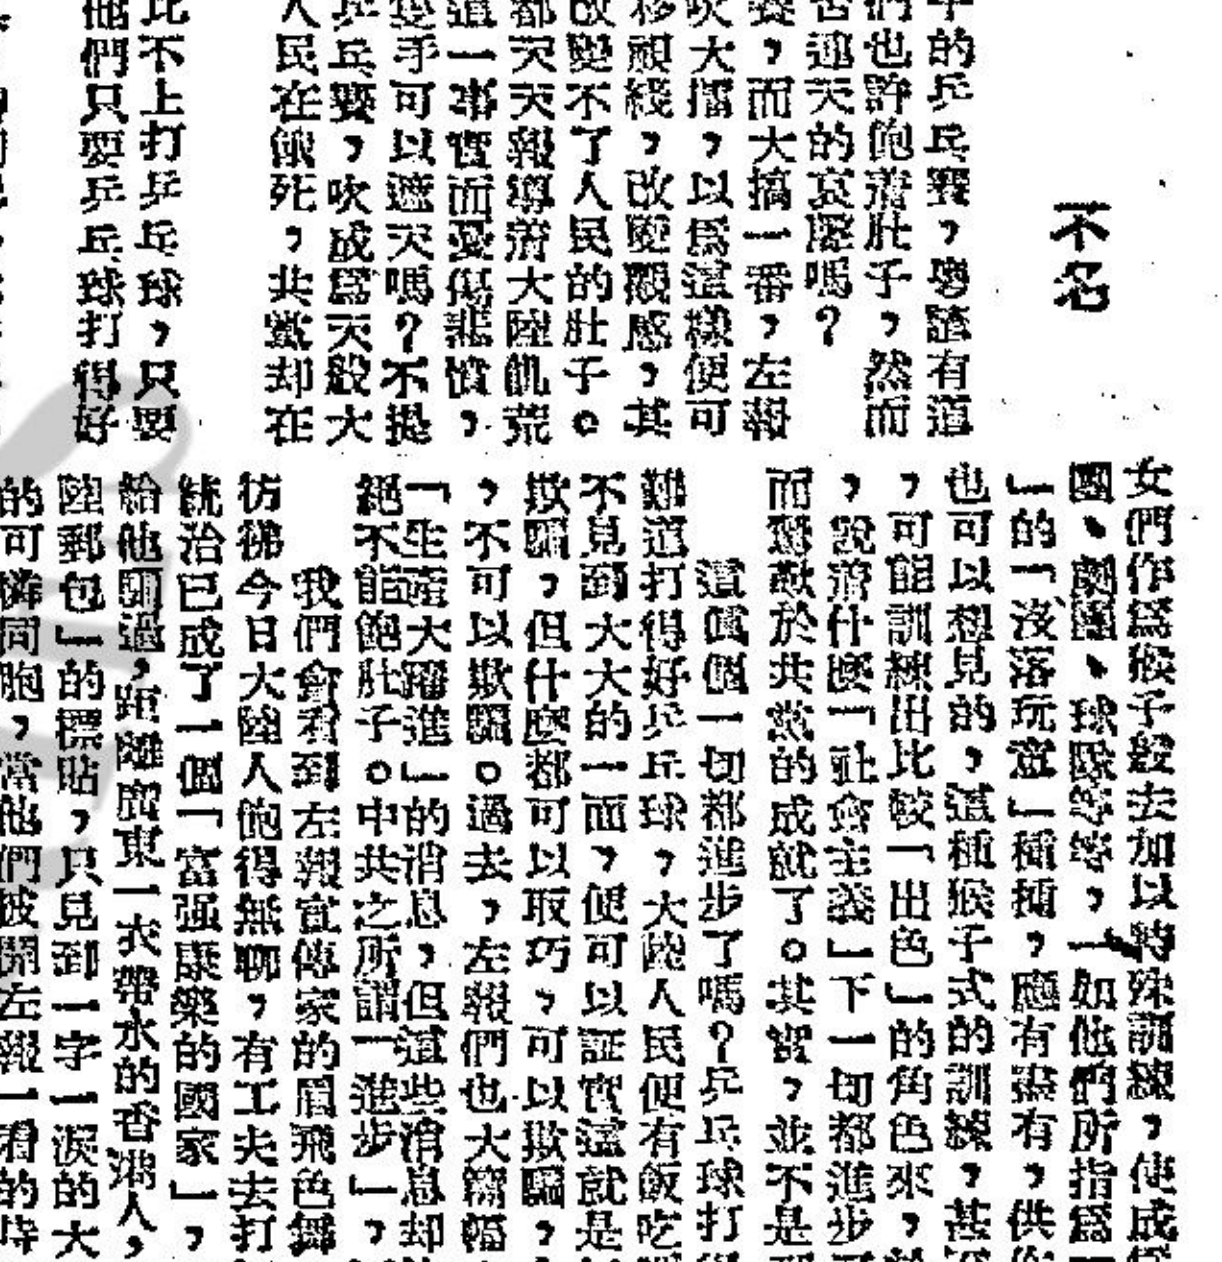 不名
字的乒乓賽，粵謔有道
們也許飽着肚子，然而
否遮天的哀聲嗎？
賽，而大搞一番，左報
吹大擂，以爲這樣便可
移視綫，改變觀感，其
改變不了人民的肚子。
都天天報導着大陸飢荒
這一事實而憂傷悲憤，
隻手可以遮天嗎？不提
乒乓賽，吹成爲天般大
人民在餓死，共黨却在
比不上打乒乓球，只要
他們只要乒乓球打得好
女們作爲猴子般去加以特殊訓練，使成爲
團、劇團、球隊等等，一如他們所指爲「
」的「沒落玩意」種種，應有盡有，供你
也可以想見的，這種猴子式的訓練，甚至
，可能訓練出比較「出色」的角色來，於
，說着什麼「社會主義」下一切都進步了
而驚歎於共黨的成就了。其實，並不是那
這眞個一切都進步了嗎？乒乓球打得
難道打得好乒乓球，大陸人民便有飯吃嗎
不見到大大的一面，便可以証實這就是
欺騙，但什麼都可以取巧，可以欺騙，
，不可以欺騙。過去，左報們也大篇幅
「生產大躍進」的消息，但這些消息却
絕不能飽肚子。中共之所謂「進步」，
我們會看到左報宣傳家的眉飛色舞
彷彿今日大陸人飽得無聊，有工夫去打
統治已成了一個「富强康樂的國家」，
給他騙過，距離廣東一衣帶水的香港人，
陸郵包」的標貼，只見到一字一淚的大
的可憐同胞，當他們披開左報一看的時